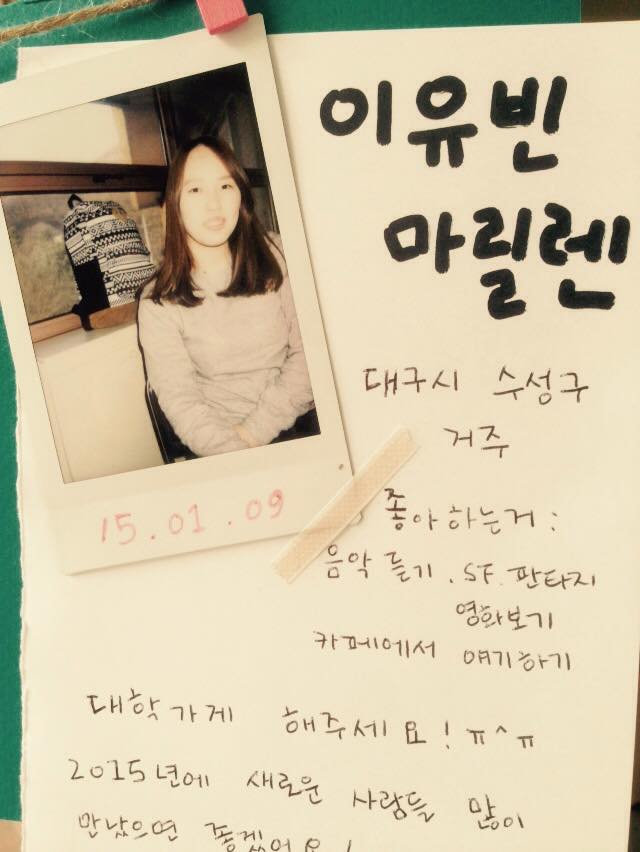 이유빈
마릴렌
대구시 수성구
거주
15.01.09
좋아하는거:
음악 듣기. SF. 판타지
영화보기
카페에서 얘기하기
대학가게 해주세요! ㅠ^ㅠ
2015년에 새로운 사람들 많이
만났으면 좋겠어요!